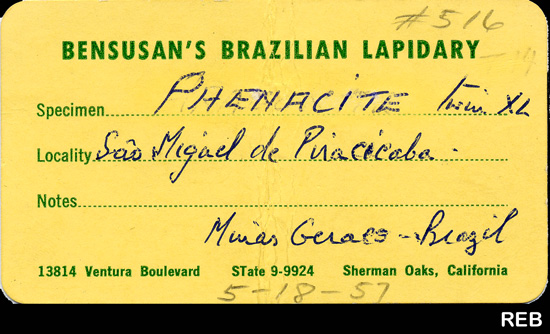 #516
BENSUSAN'S BRAZILIAN LAPIDARY
Specimen PHENACITE twin XL
Locality São Miguel de Piracicaba.
Notes
Minas Geraes - Brazil
13814 Ventura Boulevard STate 9-9924 Sherman Oaks, California
5-18-57
REB